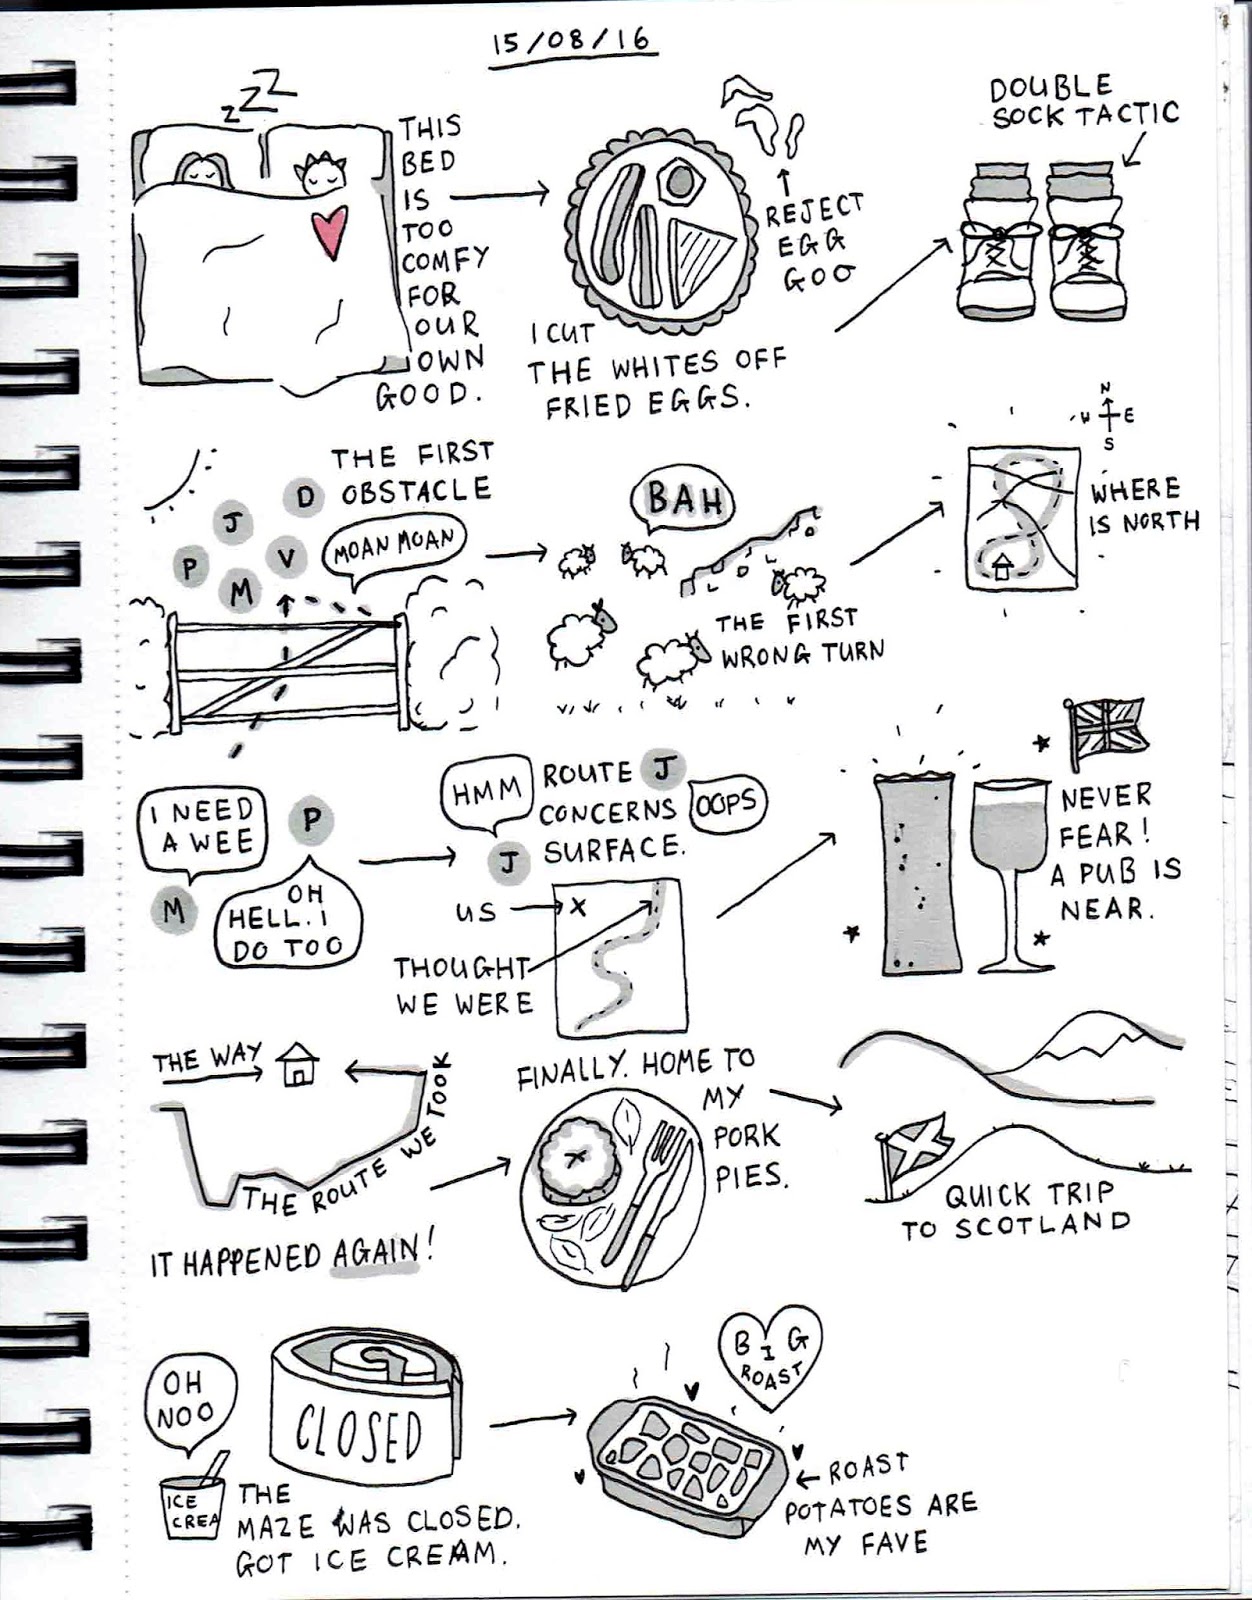 15/08/16
zzZZ
THIS
BED
IS
TOO
COMFY
FOR
OUR
OWN
GOOD.
I CUT
THE WHITES OFF
FRIED EGGS.
REJECT
EGG
GOO
DOUBLE
SOCK TACTIC
THE FIRST
OBSTACLE
D
J
P
V
M
MOAN MOAN
BAH
THE FIRST
WRONG TURN
N
W E
S
WHERE
IS NORTH
I NEED
A WEE
M
P
OH
HELL. I
DO TOO
HMM
J
ROUTE J
CONCERNS
SURFACE.
OOPS
US
X
THOUGHT
WE WERE
NEVER
FEAR!
A PUB IS
NEAR.
THE WAY
THE ROUTE WE TOOK
IT HAPPENED AGAIN!
FINALLY. HOME TO
MY
PORK
PIES.
QUICK TRIP
TO SCOTLAND
OH
NOO
ICE
CREA
CLOSED
THE
MAZE WAS CLOSED.
GOT ICE CREAM.
BIG
ROAST
ROAST
POTATOES ARE
MY FAVE